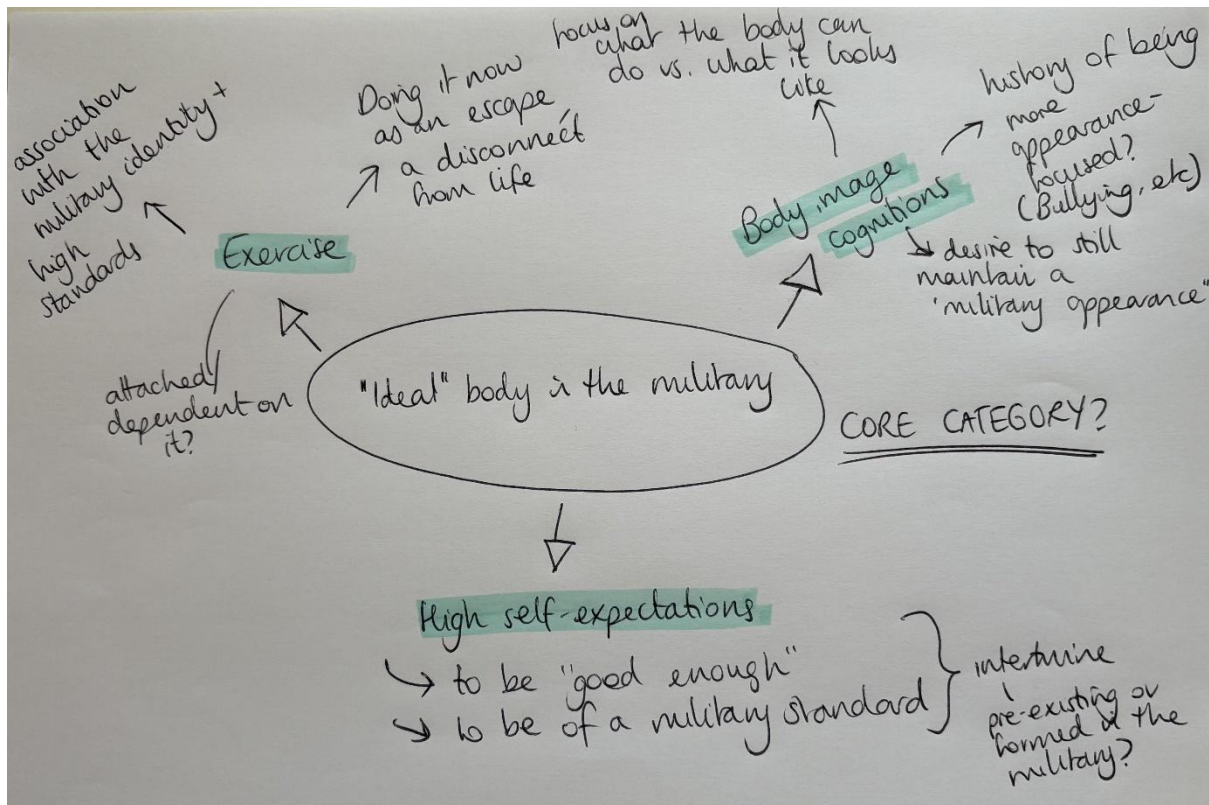 association
with the
military identity +
high
standards
Doing it now
as an escape,
a disconnect
from life
Exercise
attached/
dependent on
it?
focus on
what the body can
do vs. what it looks
like
history of being
more
appearance-
focused?
(Bullying, etc)
Body image
cognitions
desire to still
maintain a
"military appearance"
"Ideal" body in the military
CORE CATEGORY?
High self-expectations
to be "good enough"
to be of a military standard
intertwine
pre-existing or
formed in the
military?